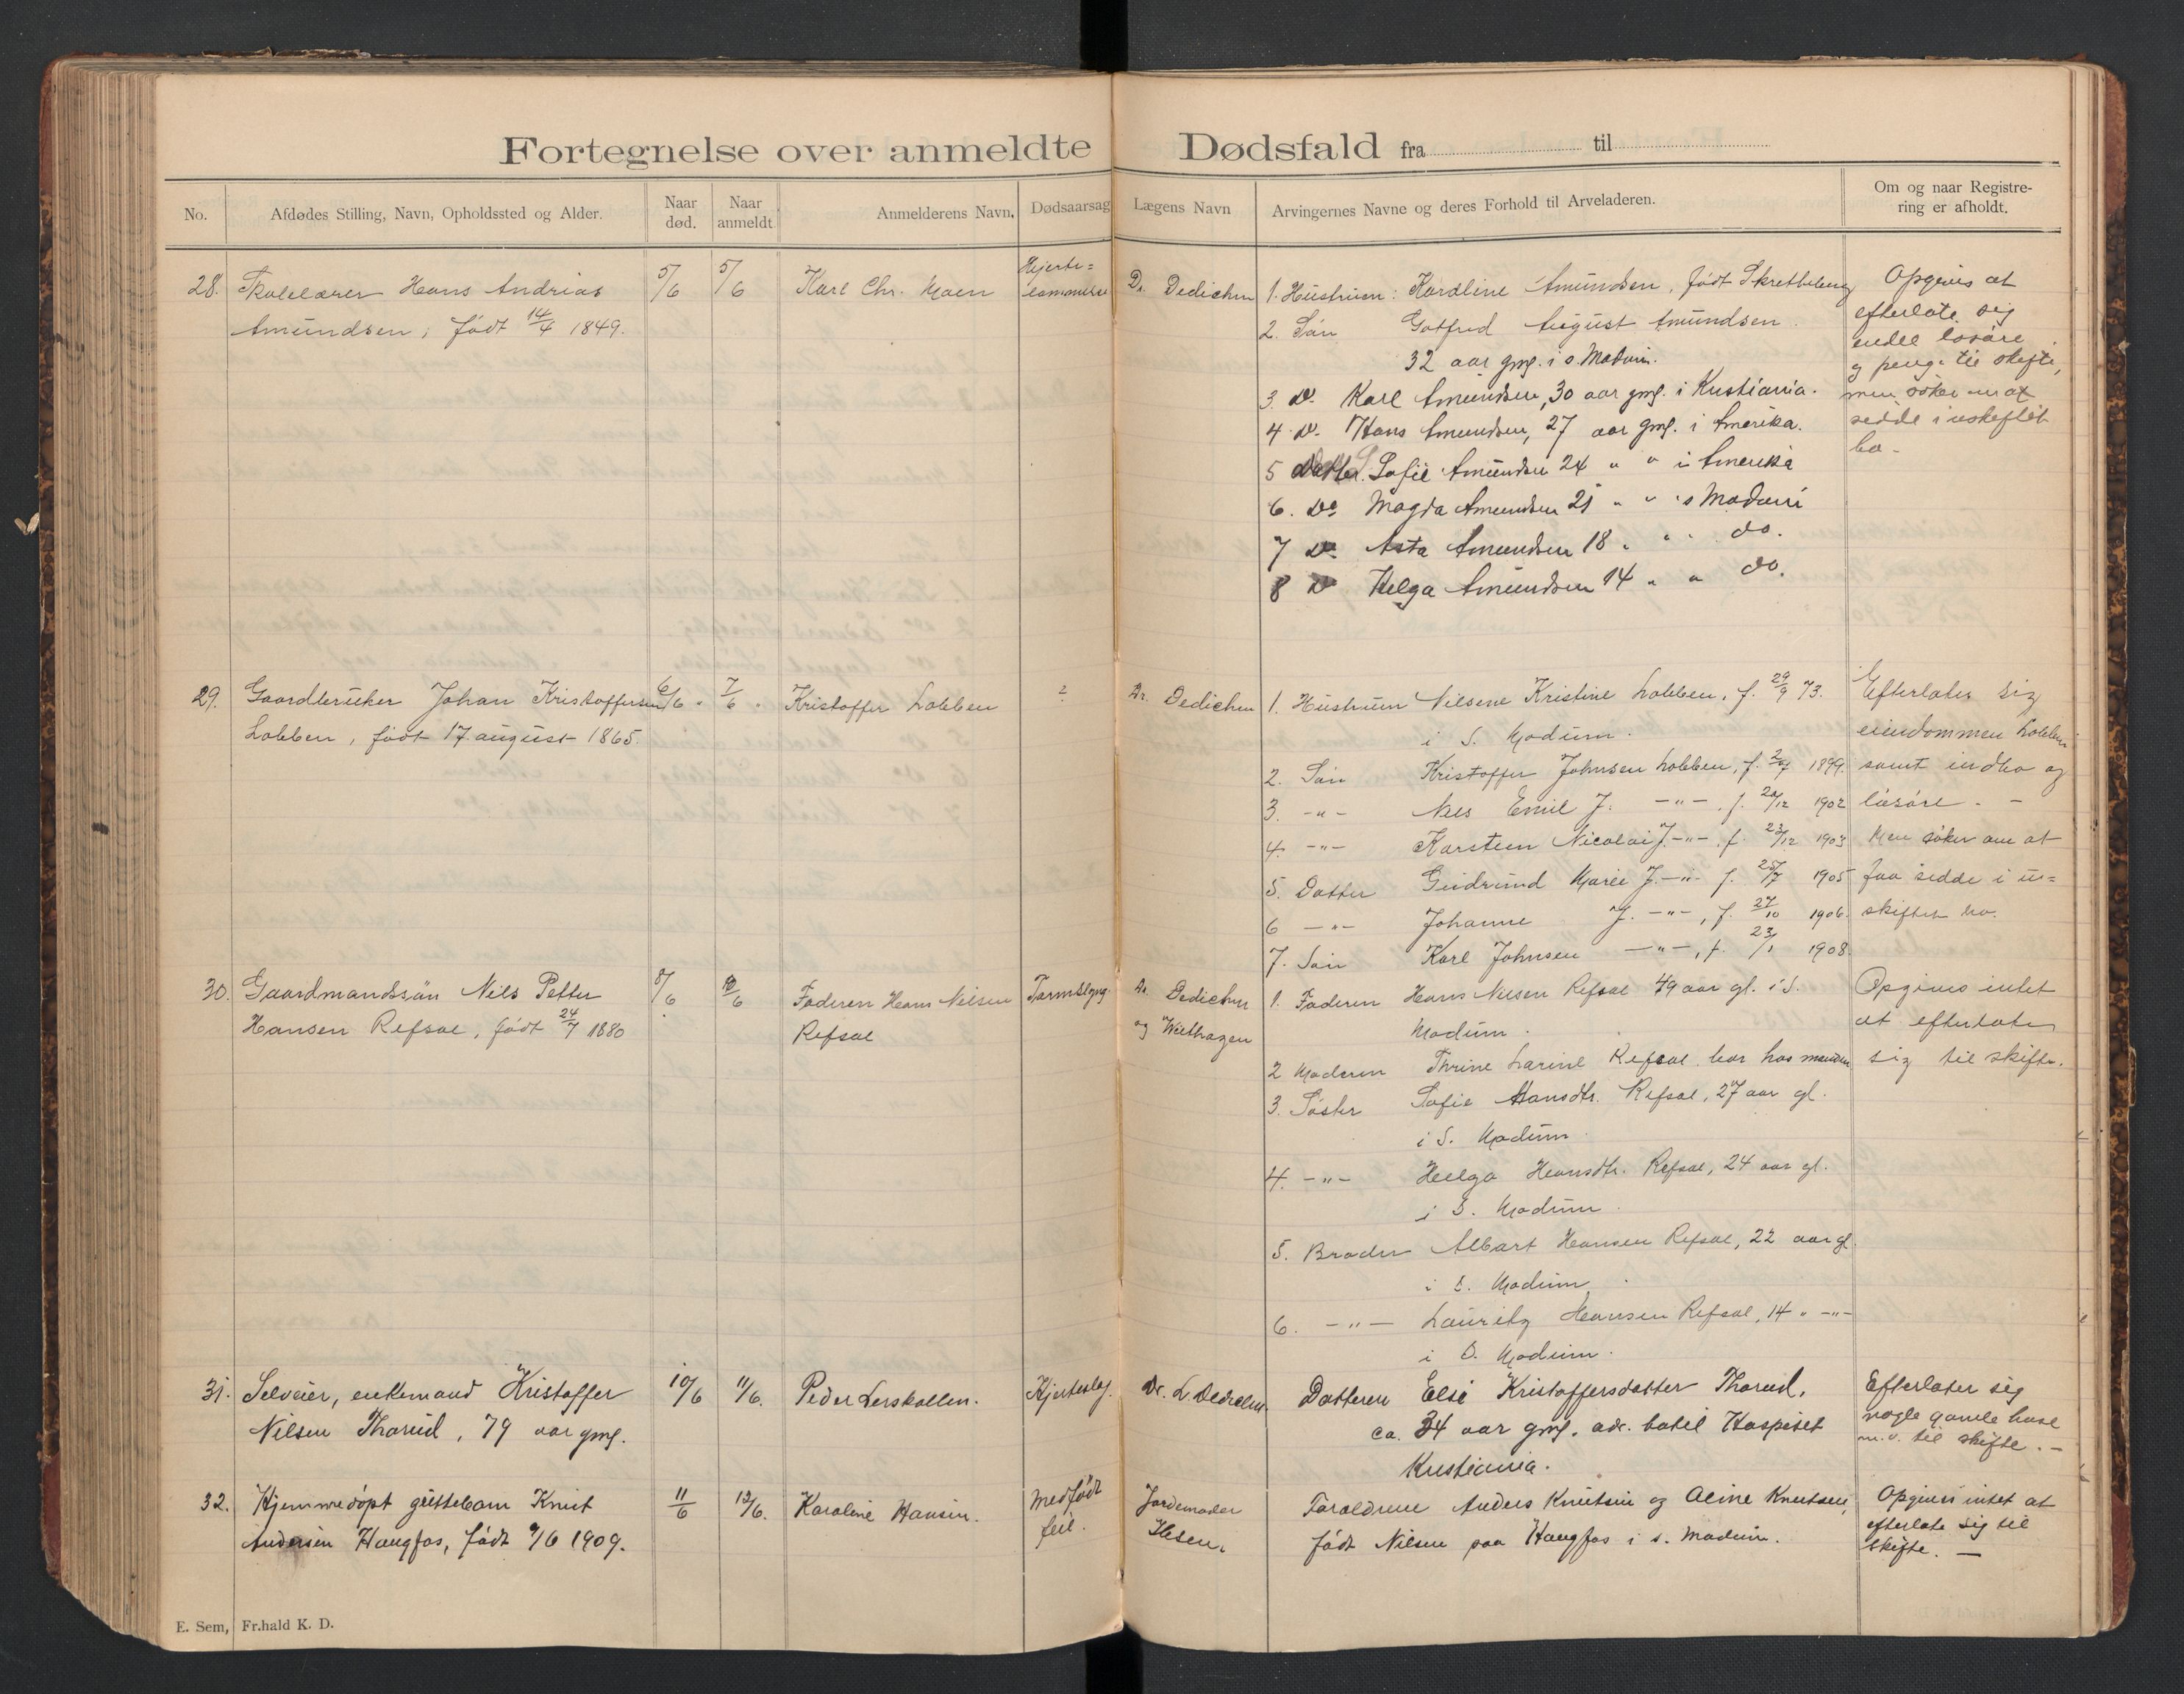 Fortegnelse over anmeldte Dødsfald fra til
No.
Afdødes Stilling, Navn, Opholdssted og Alder.
Naar død.
Naar anmeldt.
Anmelderens Navn.
Dødsaarsag
Lægens Navn
Arvingernes Navne og deres Forhold til Arveladeren.
Om og naar Registrering er afholdt.
28. Skolelærer Hans Andrias
Amundsen, født 14/4 1849.
5/6
5/6
Karl Chr. Moen
Hjerte=
Dr. Dedichen
1. Hustruen: Karoline Amundsen, født Skretteberg
2. Søn Gotfred August Amundsen
32 aar gml. i s. Modum.
3. Do. Karl Amundsen, 30 aar gml. i Kristiania.
4 Do. Hans Amundsen, 27 aar gml. i Amerika.
5 Datter. Sofie Amundsen 24 " " i Amerika
6. Do Magda Amundsen 21 " " s Modum
7 Do. Asta Amundsen 18 " " do.
8 Do Helga Amundsen 14 " " do.
Opgives at
efterlate sig
endel løsøre
og penge til skifte,
men søker om at
sidde i uskiftet
bo.
29. Gaardbruker Johan Kristoffersen
Lobben, født 17. august 1865.
6/6.
7/6.
Kristoffer Lobben
?
Dr. Dedichen
1. Hustruen Nilsene Kristine Lobben, f. 29/9 73.
i S. Modum.
2. Søn Kristoffer Johnsen Lobben, f. 1899.
3. -"- Nils Emil J. -"-, f. 20/12 1902
4. -"- Karsten Nicolai J. -"-, f. 23/12 1903
5. Datter Gudrund Marie J. -"- f. 25/7 1905
6 -"- Johanne J. -"-, f. 27/10 1906.
7. Søn Karl Johnsen -"-, f. 23/1 1908.
Efterlater sig
eiendommen Lobben
samt indbo og
løsøre. -
Men søker om at
faa sidde i u=
skiftet bo.
30. Gaardmandssøn Nils Petter
Hansen Refsal, født 24/7 1880
8/6
/6
Faderen Hans Nilsen
Refsal
Tarmslyng
Dr. Dedichen
og Welhagen
1. Faderen Hans Nilsen Refsal 49 aar gl. i S.
Modum.
2 Moderen Thrine Larine Refsal bor hos manden
3. Søster Sofie Hansdtr. Refsal, 27 aar gl.
i S. Modum
4. -"- Helga Hansdtr. Refsal, 24 aar gl.
i S. Modum
5. Broder Albart Hansen Refsal, 22 aar gl.
i S. Modum.
6. -"- Lauritz Hansen Refsal, 14 " -"-
i S. Modum.
Opgives intet
at efterlate
sig til skifte.
31. Selveier, enkemand Kristoffer
Nilsen Thorud, 79 aar gml.
10/6
11/6.
Peder Lerskallen.
Hjerteslag.
Dr. L. Dedichen.
Datteren Else Kristoffersdatter Thorud,
ca. 34 aar gml. adr. hotel Hospitset
Kristiania.
Efterlater sig
nogle gamle huse
m.v. til skifte. -
32. Hjemmedøpt guttebarn Knut
Andersen Haugfos, født 9/6 1909.
11/6
12/6.
Karoline Hansen.
Medfødt
feil.
Jordemoder
Ilsen.
Foreldrene Anders Knutsen og Aline Knutsen,
født Nilsen paa Haugfos i s. Modum.
Opgives intet at
efterlate sig til
skifte. -
E. Sem, Fr.hald K. D.